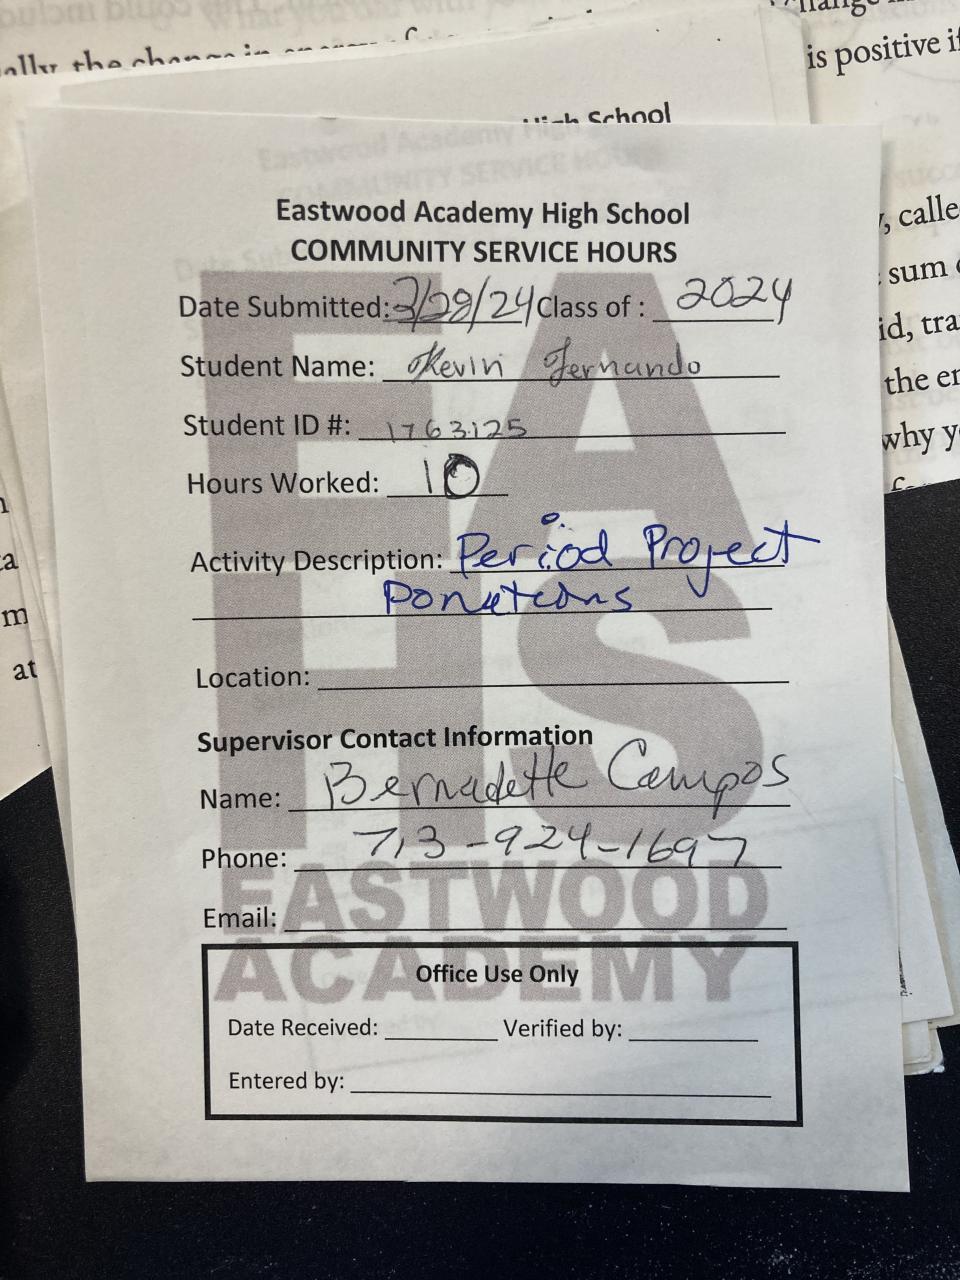 ally, the change in
is positive if
High School
, calle
sum
id, tra
the en
why y
a
m
at
Eastwood Academy High School
COMMUNITY SERVICE HOURS
Date Submitted: 3/28/24 Class of : 2024
Student Name: Kevin Fernando
Student ID #: 1763125
Hours Worked: 10
Activity Description: Period Project
Donations
Location:
Supervisor Contact Information
Name: Bernadette Campos
Phone: 713-924-1697
Email:
EAHS
EASTWOOD
ACADEMY
Office Use Only
Date Received: Verified by:
Entered by: